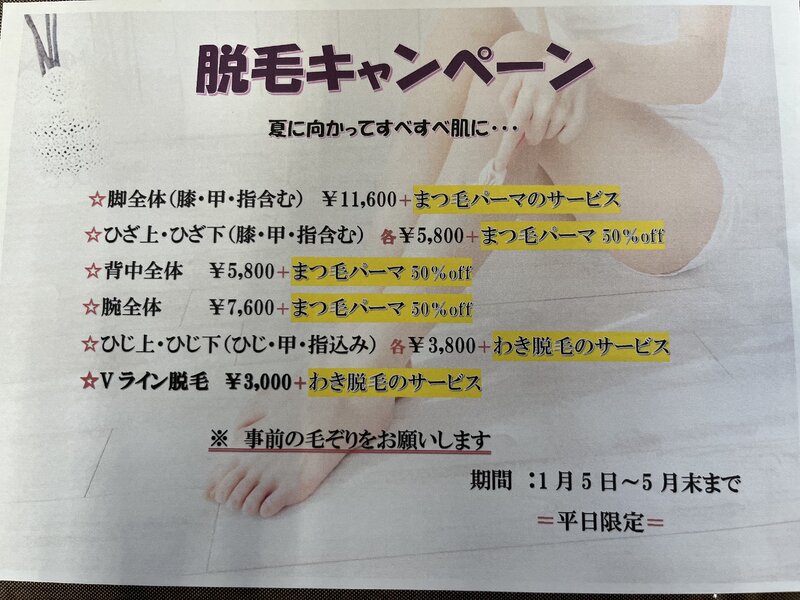 脱毛キャンペーン
夏に向かってすべすべ肌に・・・
☆脚全体(膝・甲・指含む) ￥11,600+まつ毛パーマのサービス
☆ひざ上・ひざ下(膝・甲・指含む) 各￥5,800+まつ毛パーマ 50%off
☆背中全体 ￥5,800+まつ毛パーマ 50%off
☆腕全体 ￥7,600+まつ毛パーマ 50%off
☆ひじ上・ひじ下(ひじ・甲・指込み) 各￥3,800+わき脱毛のサービス
☆Vライン脱毛 ￥3,000+わき脱毛のサービス
※ 事前の毛ぞりをお願いします
期間 :1月5日～5月末まで
=平日限定=